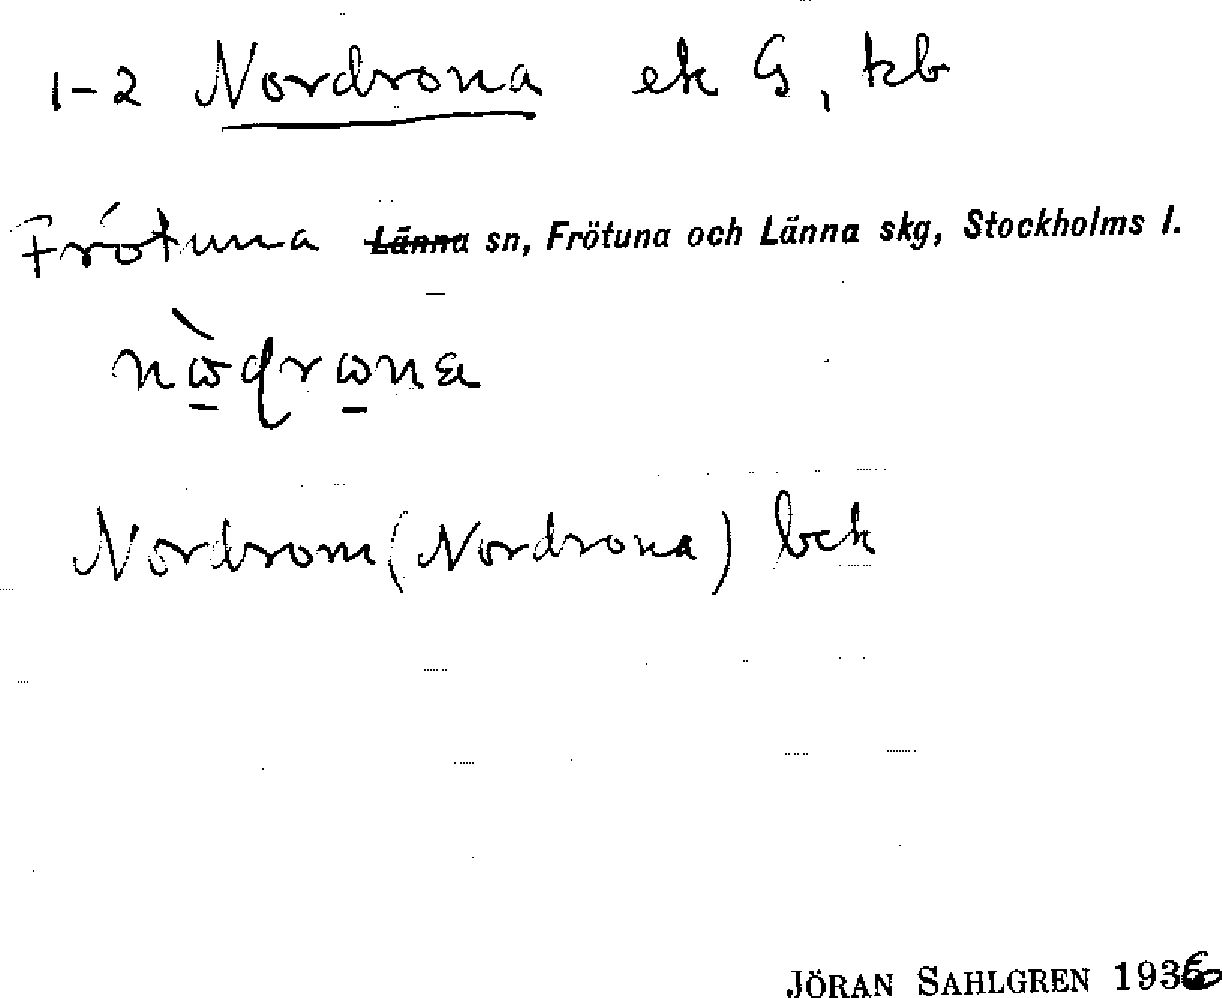 1-2 Nordrona ek G, kb
Frötuna Länna sn, Frötuna och Länna skg, Stockholms l.
Nordrom (Nordrona) bck
JÖRAN SAHLGREN 1936